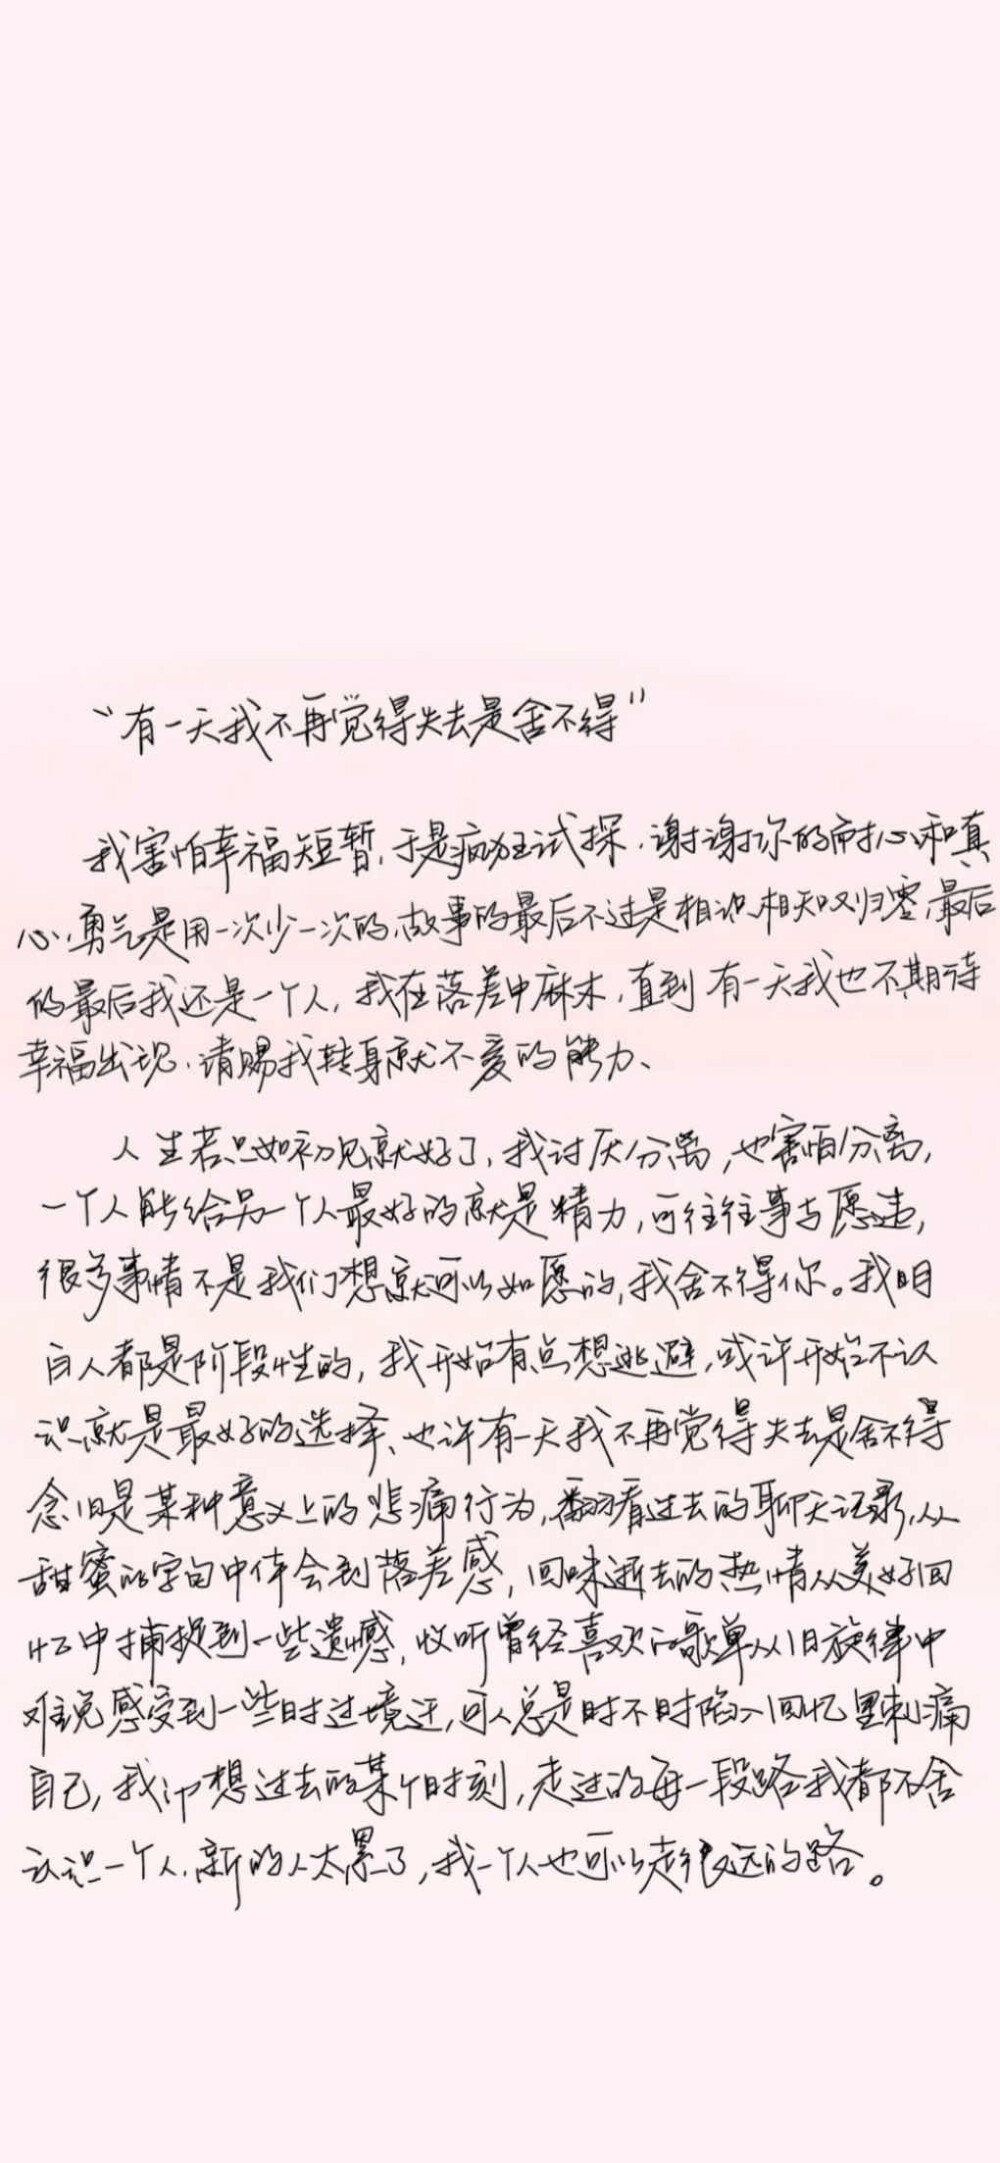 “有一天我不再觉得失去是舍不得”
我害怕幸福短暂,于是疯狂试探.谢谢你的耐心和真
心,勇气是用一次少一次的,故事的最后不过是相识、相知又归零,最后
的最后我还是一个人,我在落差中麻木,直到有一天我也不期待
幸福出现.请赐我转身就不爱的能力、
人生若只如初见就好了,我讨厌分离,也害怕分离,
一个人能给另一个人最好的就是精力,可往往事与愿违,
很多事情不是我们想就可以如愿的,我舍不得你。我明
白人都是阶段性的,我开始有点想逃避,或许开始不认
识就是最好的选择、也许有一天我不再觉得失去是舍不得
念旧是某种意义上的悲痛行为,翻看过去的聊天记录,从
甜蜜的字句中体会到落差感,回味逝去的热情从美好回
忆中捕捉到一些遗憾,收听曾经喜欢的歌单从旧旋律中
难免感受到一些时过境迁,可人总是时不时陷入回忆里刺痛
自己,我印想过去的某个时刻,走过的每一段路我都不舍
认识一个人.新的人太累了,我一个人也可以走很远的路。